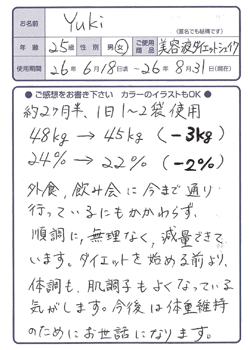 お名前 Yuki
(匿名でも結構です)
年齢 25歳 性別 男・女 ご使用商品 美容液ダイエットシェイク
使用期間 26年6月18日頃 〜 26年8月31日(現在)
●ご感想をお書き下さい カラーのイラストもOK●
約2ヶ月半、1日1〜2袋使用
48kg → 45kg (−3kg)
24% → 22% (−2%)
外食、飲み会に今まで通り
行っているにもかかわらず、
順調に、無理なく、減量できて
います。ダイエットを始める前より、
体調も、肌調子もよくなっている
気がします。今後は体重維持
のためにお世話になります。